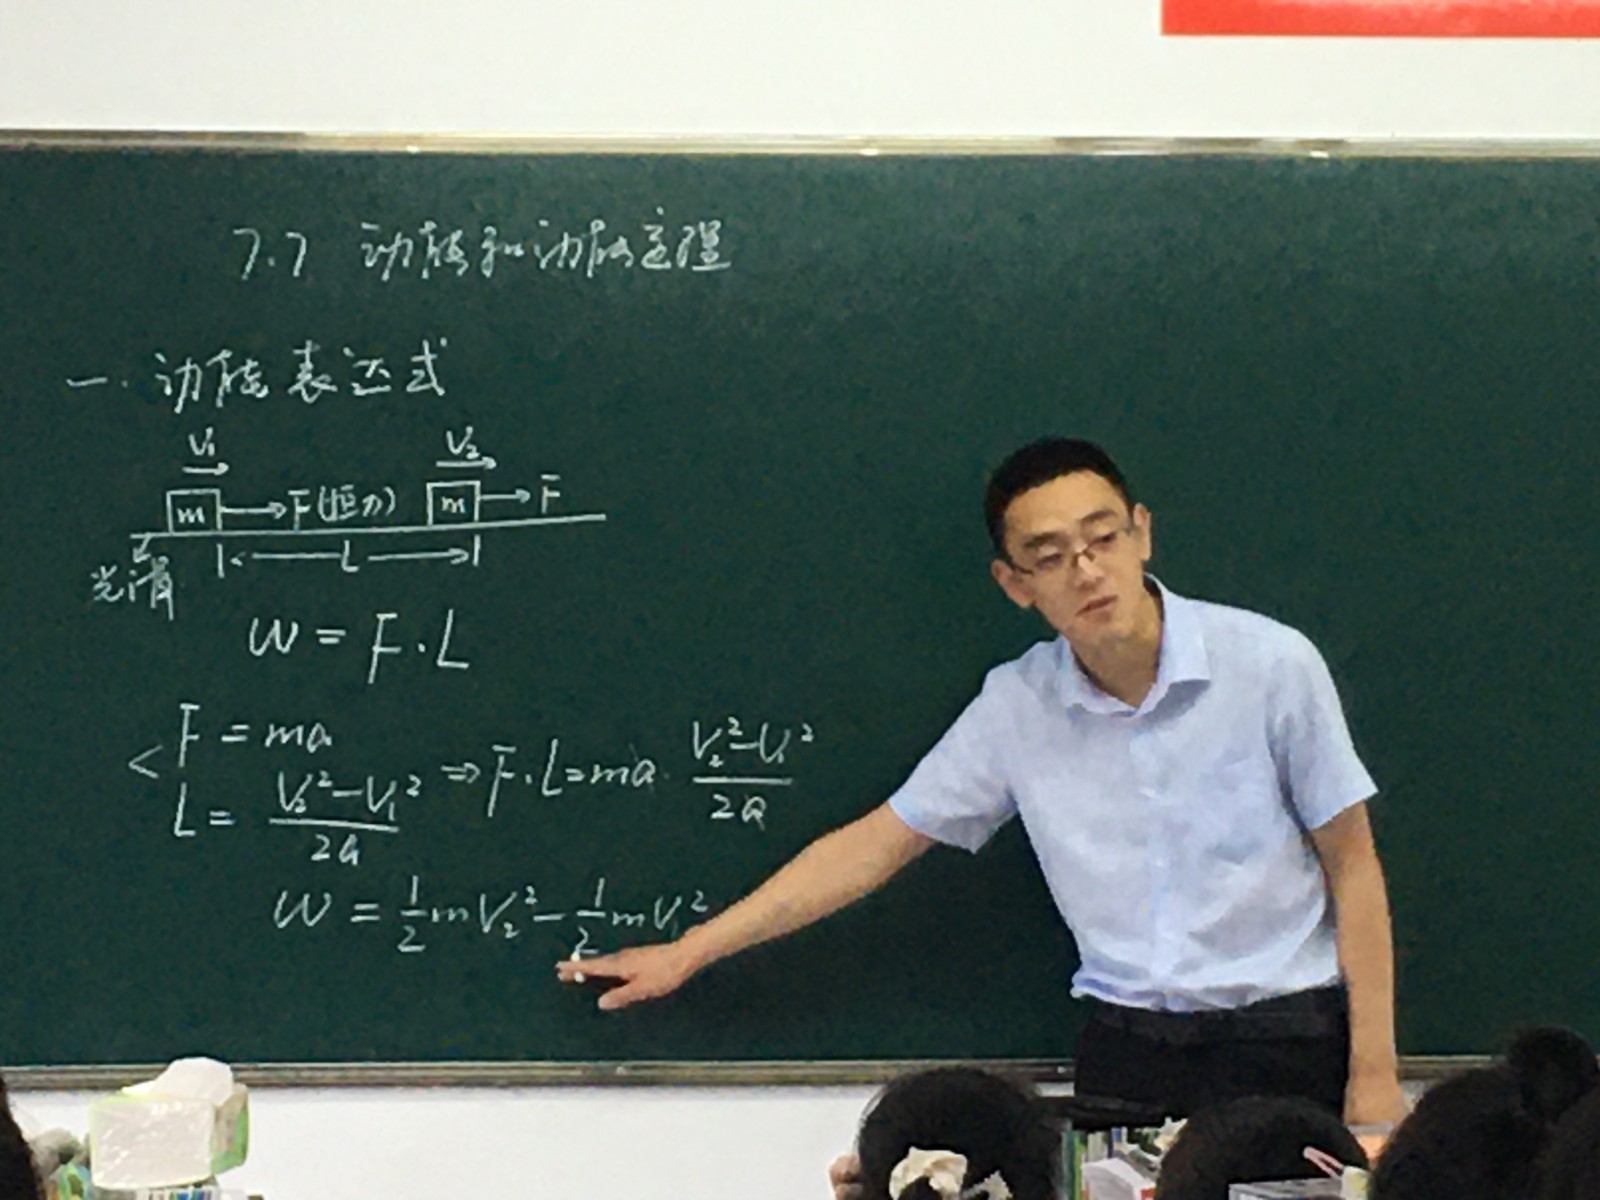 7.7 动能和动能定理
一.动能表达式
V₁ V₂
m F(恒力) m F
光滑 L
W = F·L
F = ma
L = (V₂²-V₁²)/2a ⇒ F·L=ma·(V₂²-V₁²)/2a
W = 1/2 mV₂² - 1/2 mV₁²